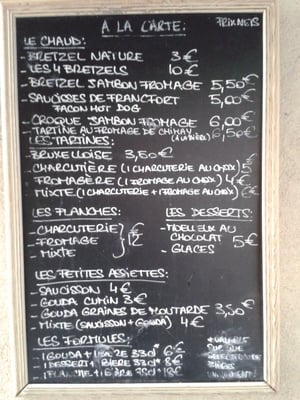 A LA CARTE:
LE CHAUD:
-BRETZEL NATURE 3€
-LES 4 BRETZELS 10€
-BRETZEL JAMBON FROMAGE 5,50€
-SAUCISSES DE FRANCFORT 5,00€
FACON HOT DOG
-CROQUE JAMBON FROMAGE 6,00€
-TARTINE AU FROMAGE DE CHIMAY 6,50€
LES TARTINES:
-BRUXELLOISE 3,50€
-CHARCUTIÈRE (1 CHARCUTERIE AU CHOIX)
-FROMAGÈRE (1 FROMAGE AU CHOIX) 4€
-MIXTE (1 CHARCUTERIE + 1 FROMAGE AU CHOIX)
LES PLANCHES: LES DESSERTS:
-CHARCUTERIE -MOELLEUX AU
-FROMAGE 12€ CHOCOLAT 5€
-MIXTE -GLACES
LES PETITES ASSIETTES:
-SAUCISSON 4€
-GOUDA CUMIN 3€
-GOUDA GRAINES DE MOUTARDE 3,50€
-MIXTE (SAUCISSON + GOUDA) 4€
LES FORMULES:
1 GOUDA + 1 BIÈRE 33cl 6€
1 DESSERT + 1 BIÈRE 33cl 8€